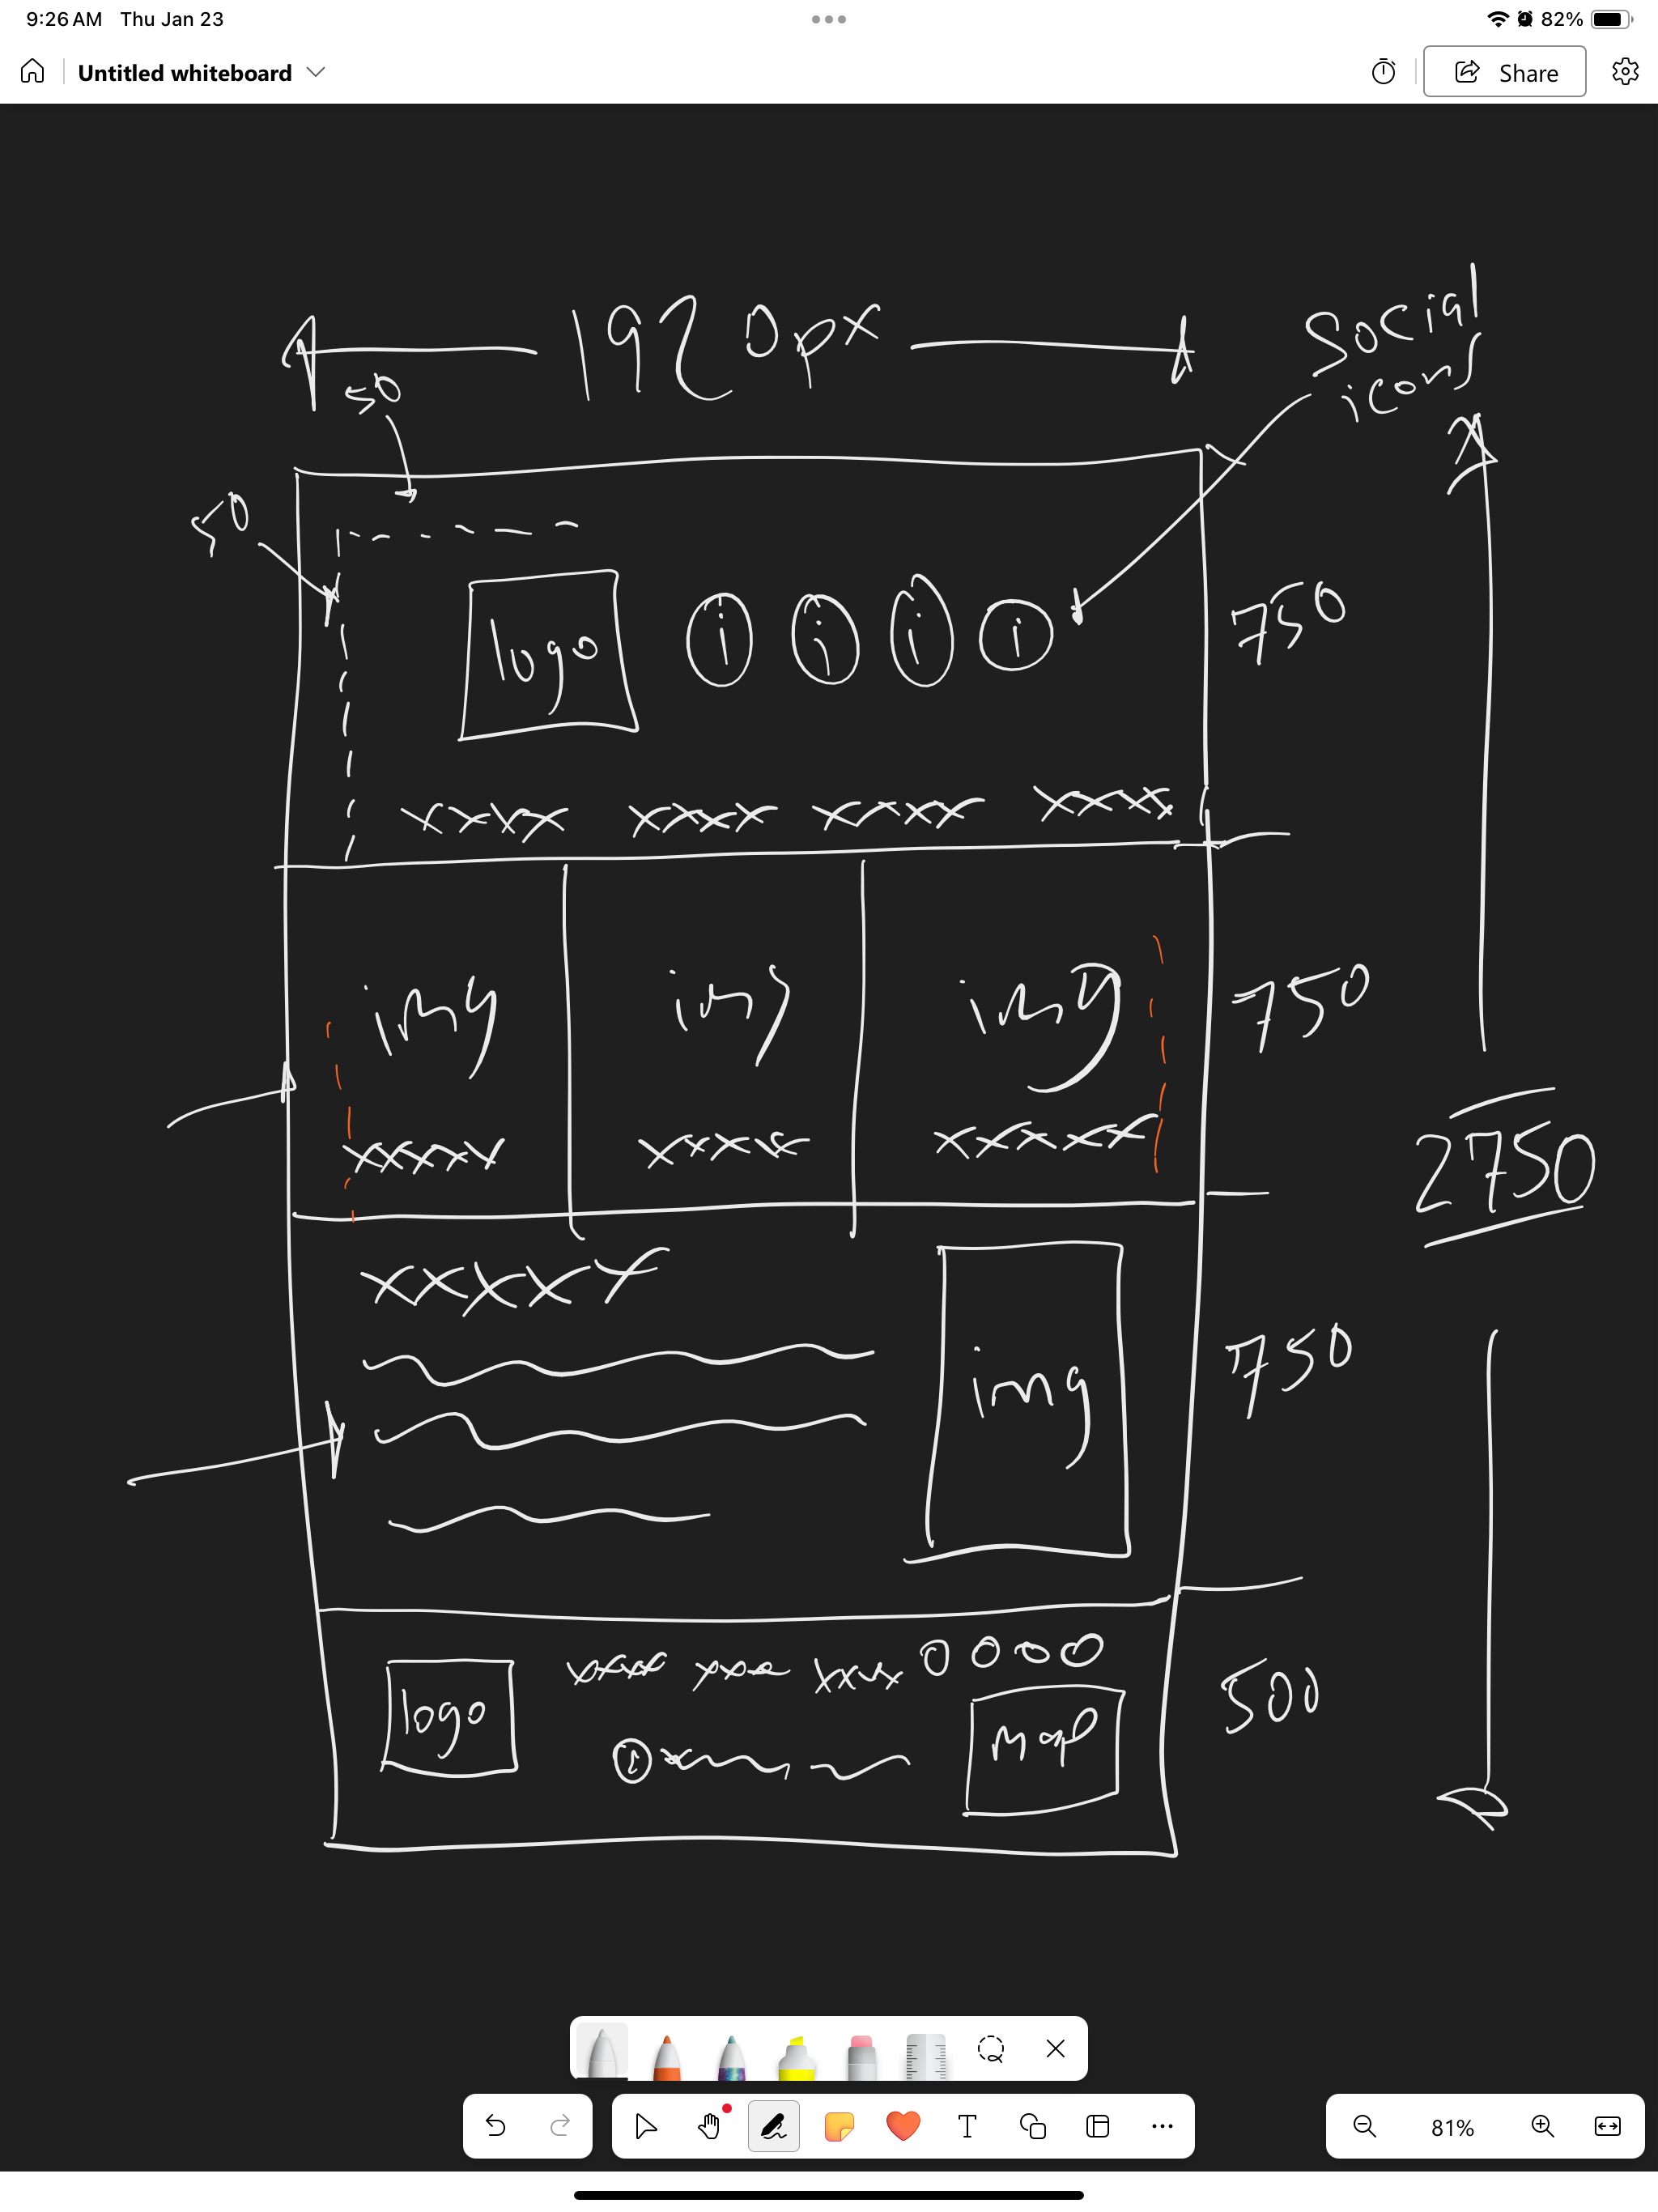 9:26 AM Thu Jan 23
82%
Untitled whiteboard
Share
1920px
Social
icons
50
50
logo
i i i i
750
xxxx xxxx xxxx xxxx
img img img
750
xxxxx xxxxx xxxxx
2750
xxxxx
img
750
logo
xxxx xxx xxx 0000
i
map
500
T
81%